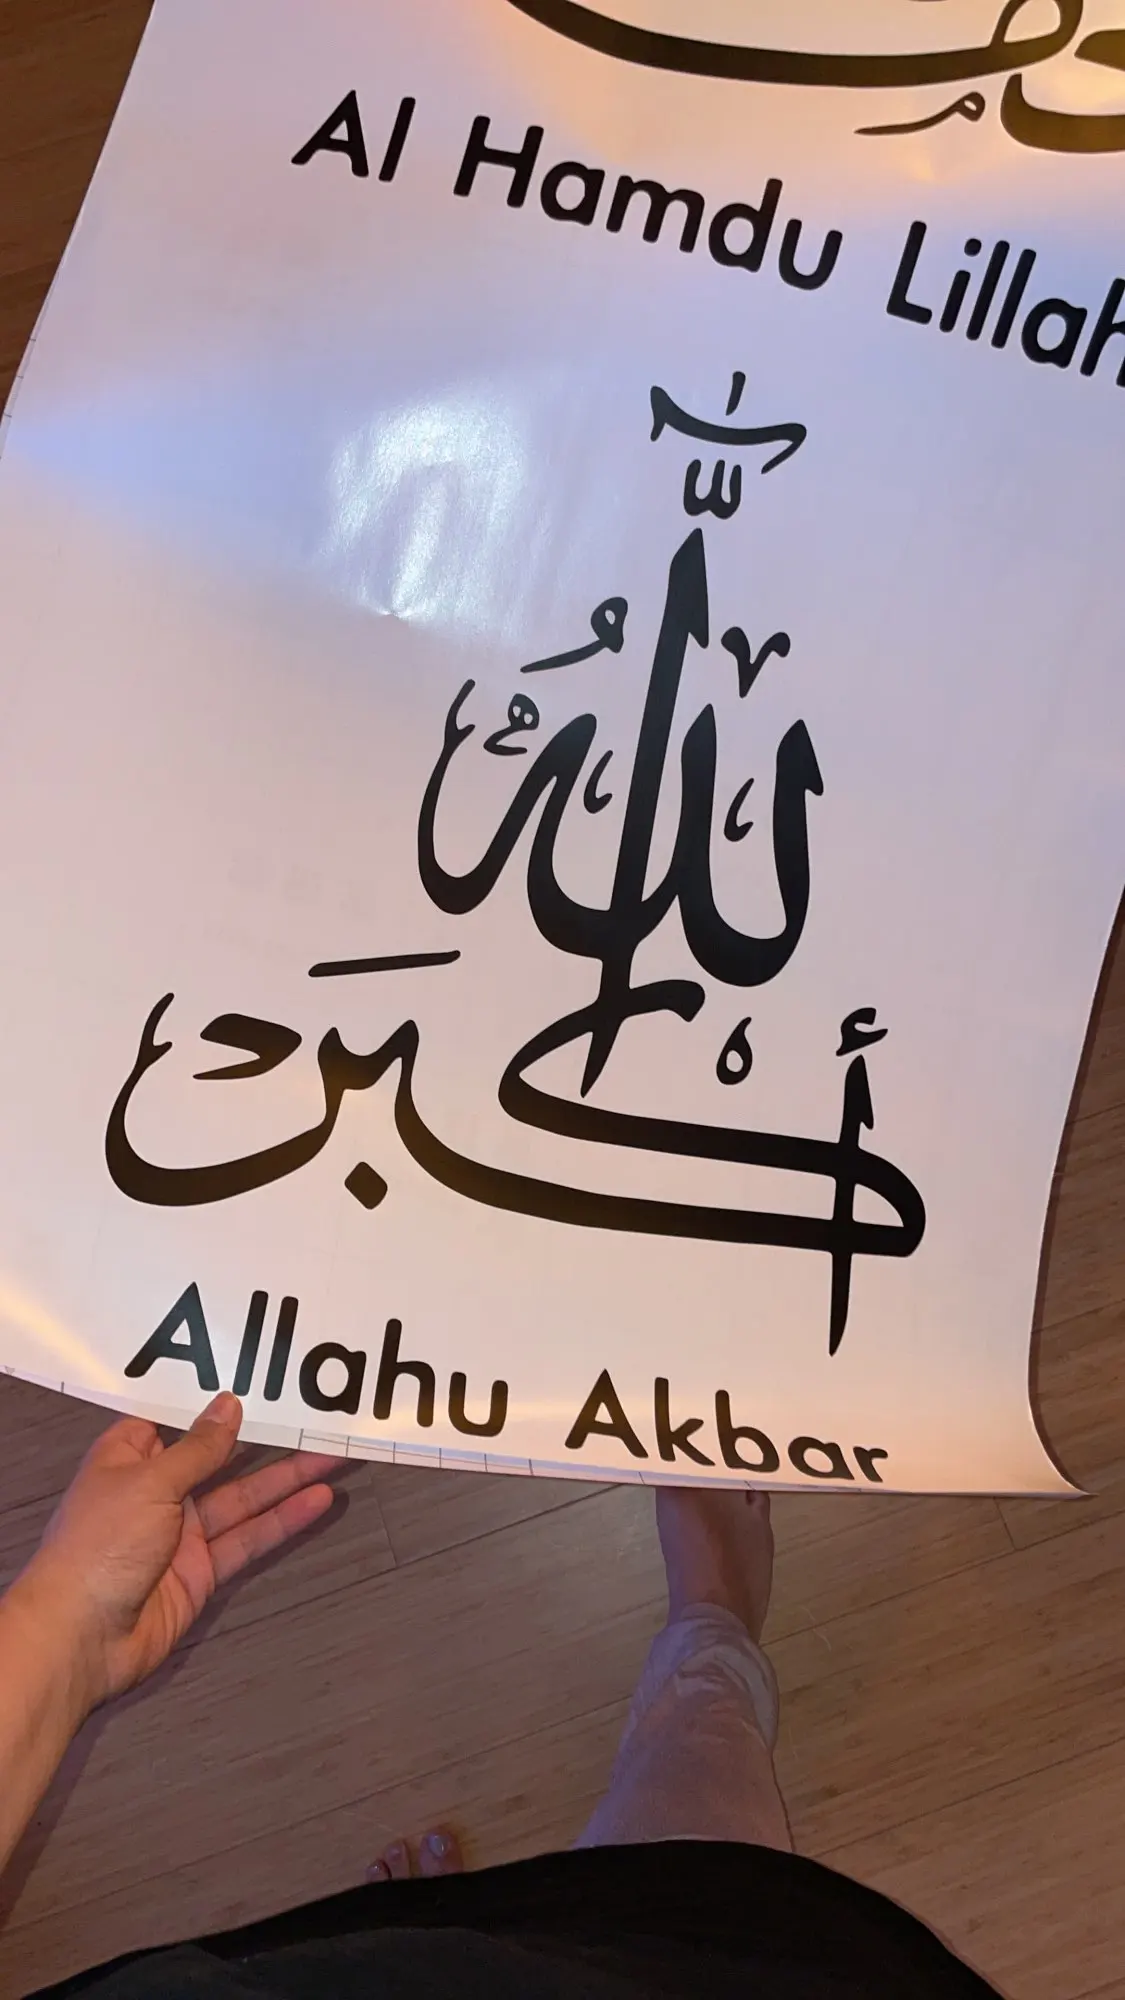 Al Hamdu Lillah
الله
أكبر
Allahu Akbar